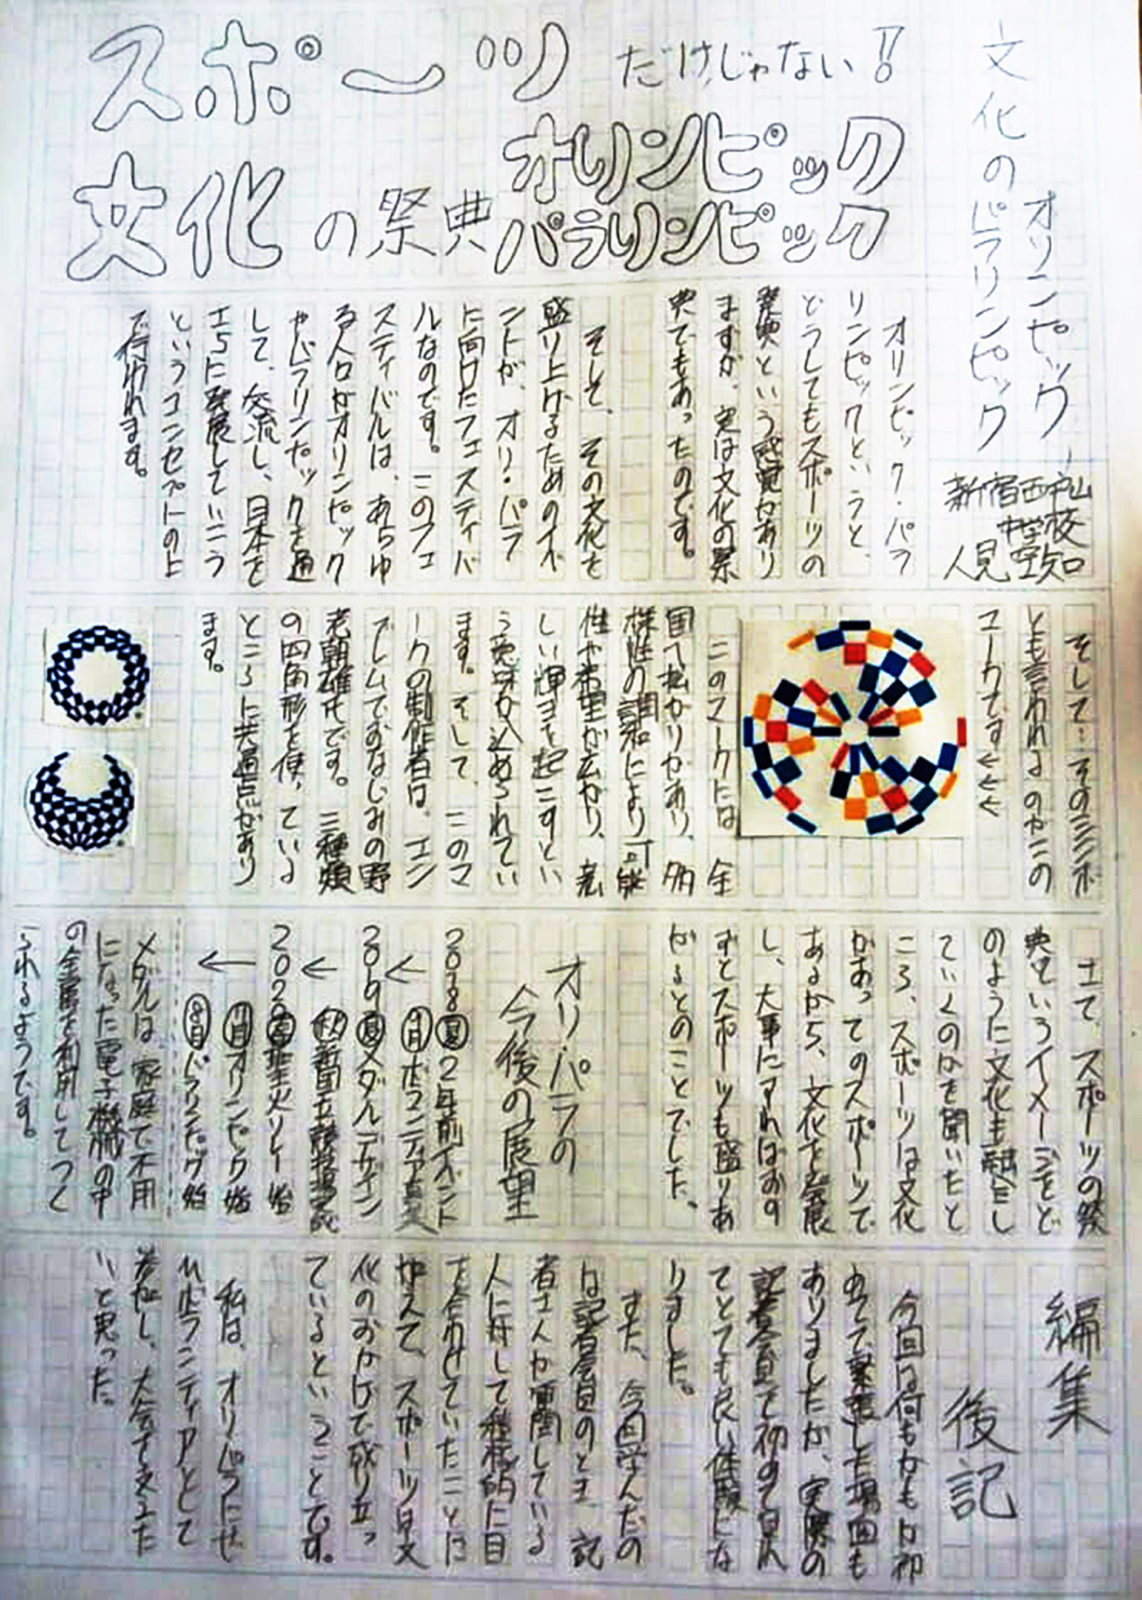 文化のオリンピック
パラリンピック
新宿西戸山
中学校
人見望知
スポーツだけじゃない!!
文化の祭典オリンピック
パラリンピック
オリンピック・パラ
リンピックというと、
どうしてもスポーツの
祭典という感覚があり
ますが、実は文化の祭
典でもあったのです。
そして、その文化を
盛り上げるためのイベ
ントが、オリ・パラ
に向けたフェスティバ
ルなのです。このフェ
スティバルは、あらゆ
る人々がオリンピック
やパラリンピックを通
して、交流し、日本を
さらに発展していこう
というコンセプトのも
で行われます。
そして…そのシンボ
とも言われるのがこの
マークです↓↓↓
このマークには全
国へ拡がりがあり、多
様性の調和により可能
性や希望が広がり、素
しい輝きを起こすとい
う意味が込められてい
ます。そして、このマ
ークの制作者は、エン
ブレムでおなじみの野
老朝雄氏です。三種類
の四角形を使っている
ところに共通点があり
ます。
さて、スポーツの祭
典というイメージをど
のように文化も融合し
ていくのかを聞いたと
ころ、スポーツは文化
があってのスポーツで
あるから、文化を発展
し、大事にすればおの
ずとスポーツも盛りあ
がるとのことでした。
オリ・パラの
今後の展望
2018夏2年前イベント
9月ボランティア募集
2019夏メダルデザイン
秋新国立競技場完
2020聖火リレー始
7月オリンピック始
8月パラリンピック始
メダルは、家庭で不用
になった電子機械の中
の金属を利用してつく
られるようです。
編集
後記
今回は何もかもが初
めてで緊張した場面も
ありましたが、実際の
記者会見で初めて見れ
てとても良い体験にな
りました。
また、今回学んだの
は記者会見のとき、記
者さんが質問している
人に対して積極的に目
を合わせていたことに
加えて、スポーツは文
化のおかげで成り立っ
ているということです。
私は、オリ・パラにぜ
ひボランティアとして
参加し、大会を支えた
いと思った。